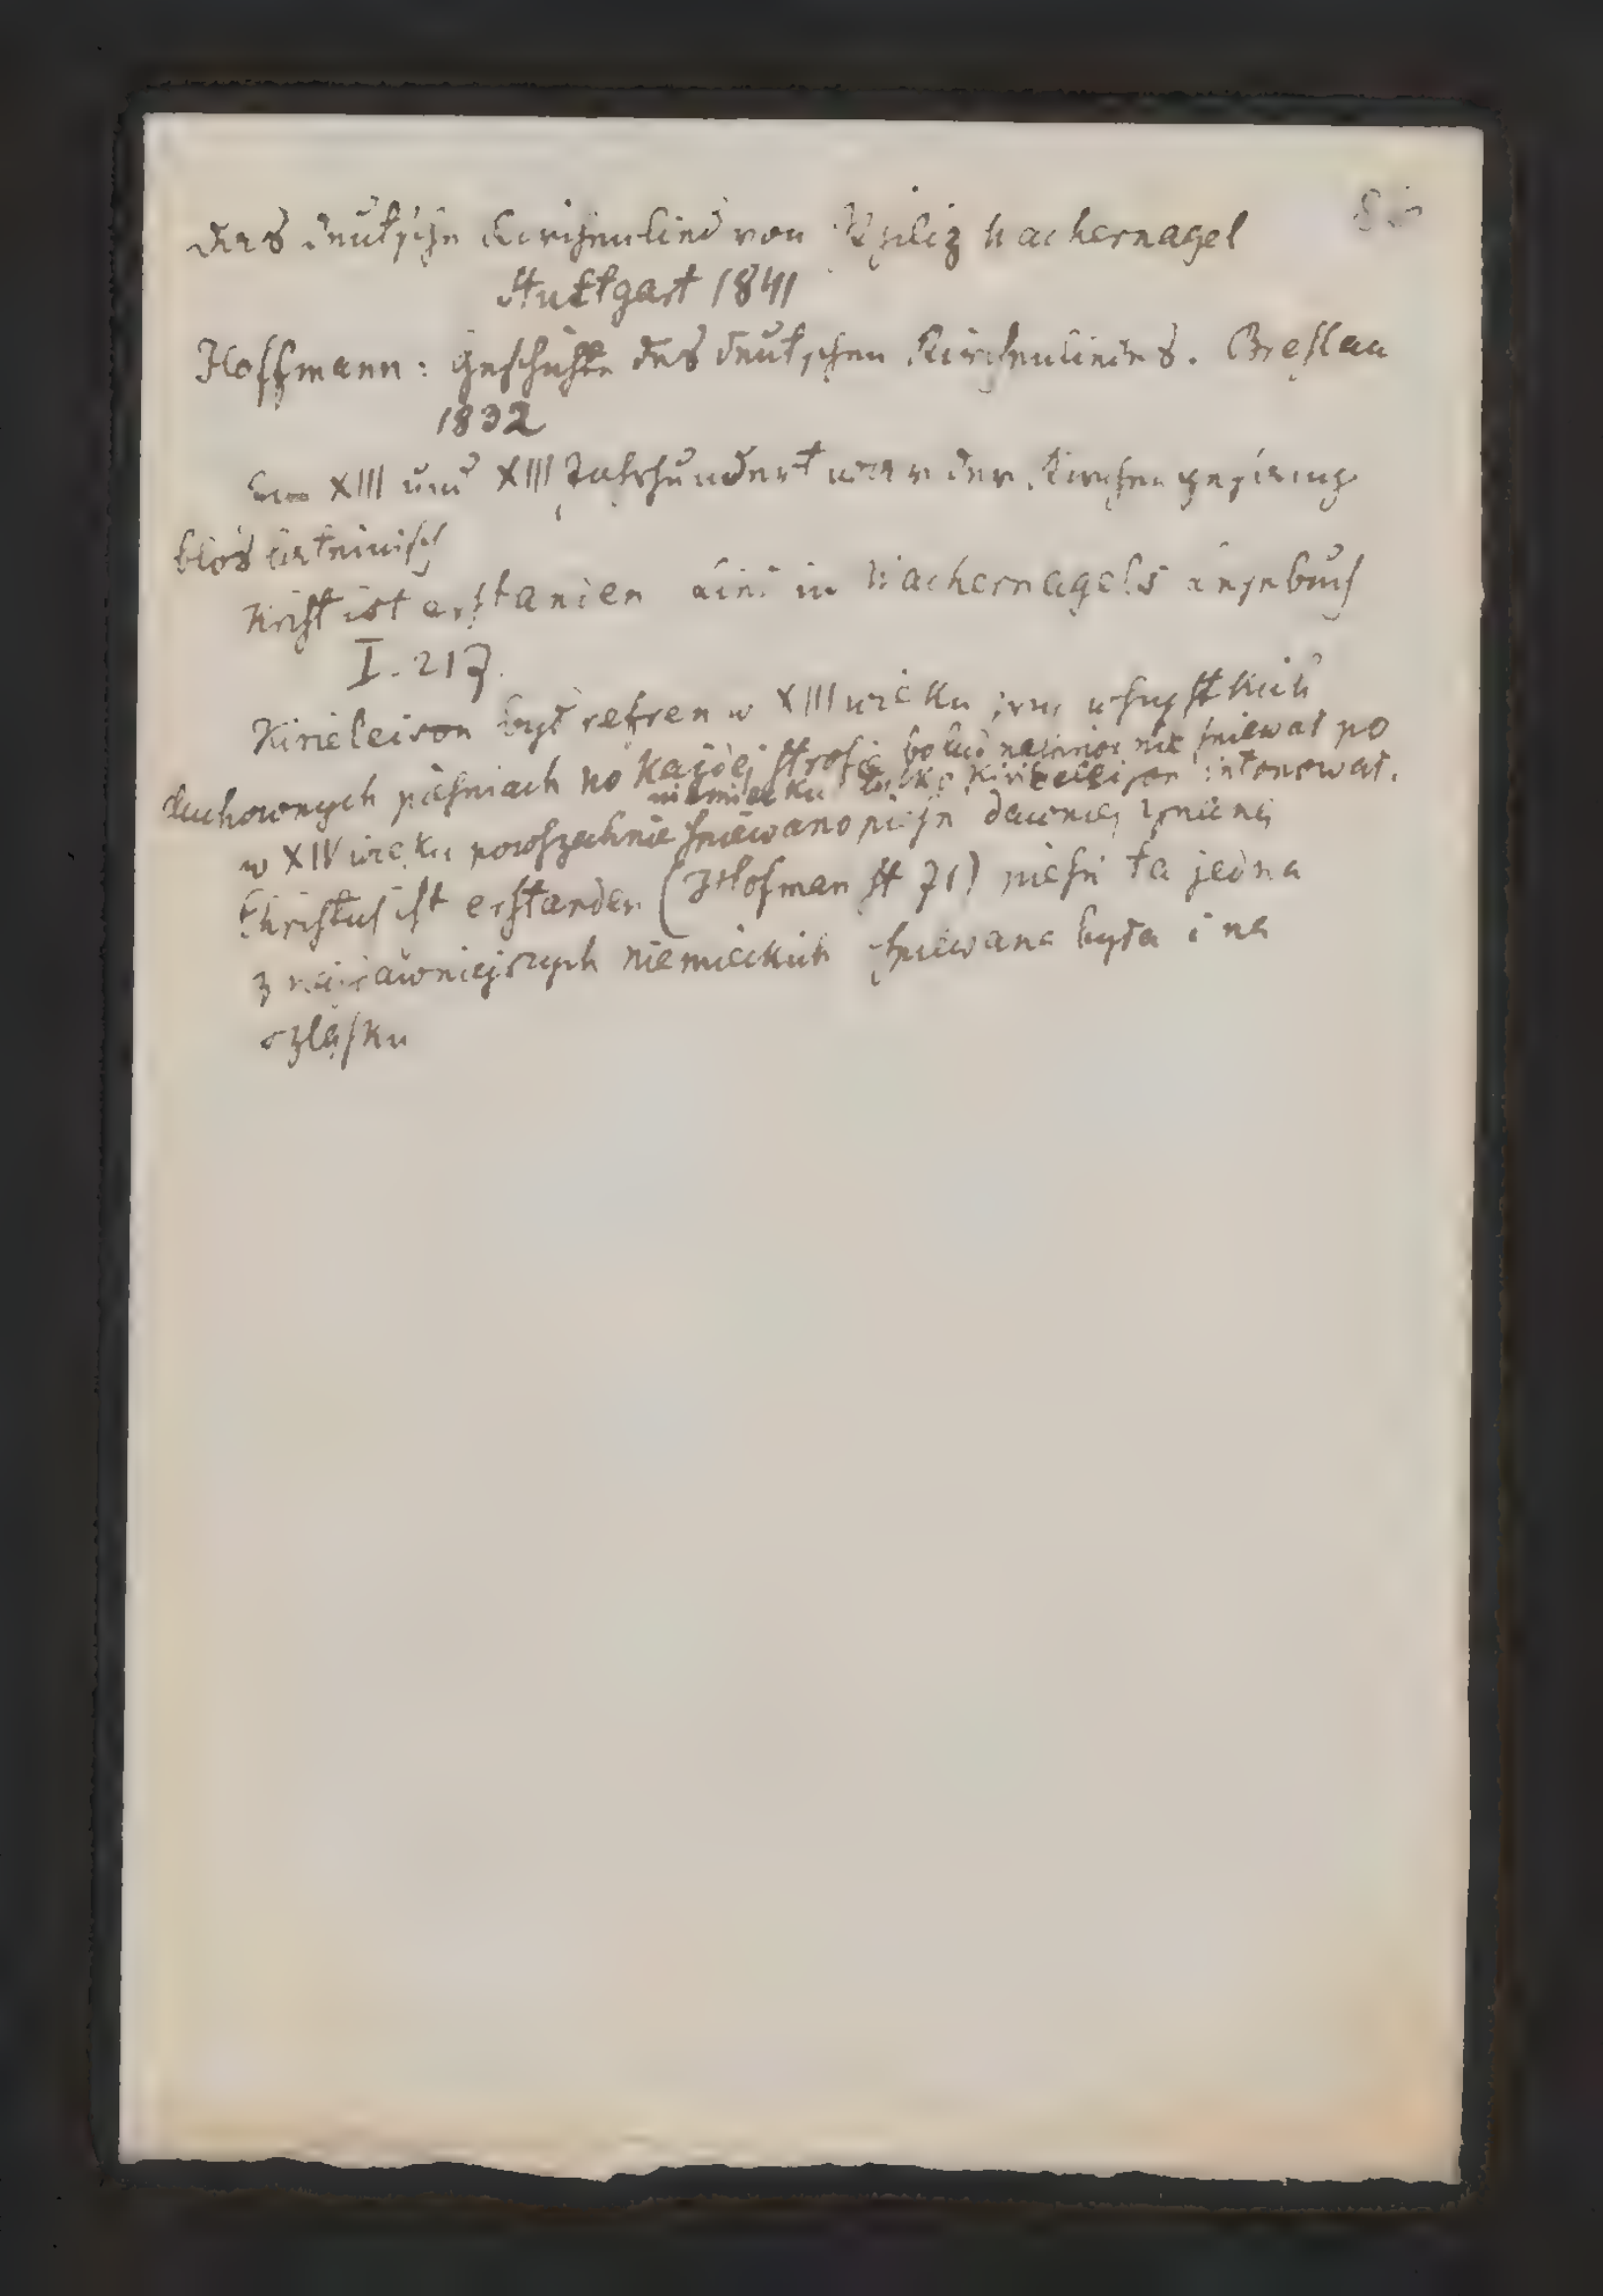 Das deutsche Kirchenlied von Philip Wackernagel
Stuttgart 1841
Hoffmann: Geschichte des deutschen Kirchenliedes. Breslau
1832
Im XIII und XIII Jahrhundert war der Kirchengesang
blos lateinisch
Krist ist erstanden in Wackernagels
I. 217.
Kirieleison był refren w XIII wieku wszystkich
duchownych pieśniach po każdej strofie bo lud nie śniewał po
niemiecku tylko Kirieleison intonował.
w XIV wieku powszechnie śniewano pieśń dawniej
Christus ist erstanden (Hofman st 71) pieśń ta jedna
z najdawniejszych niemieckich śniewana była i na
szląsku